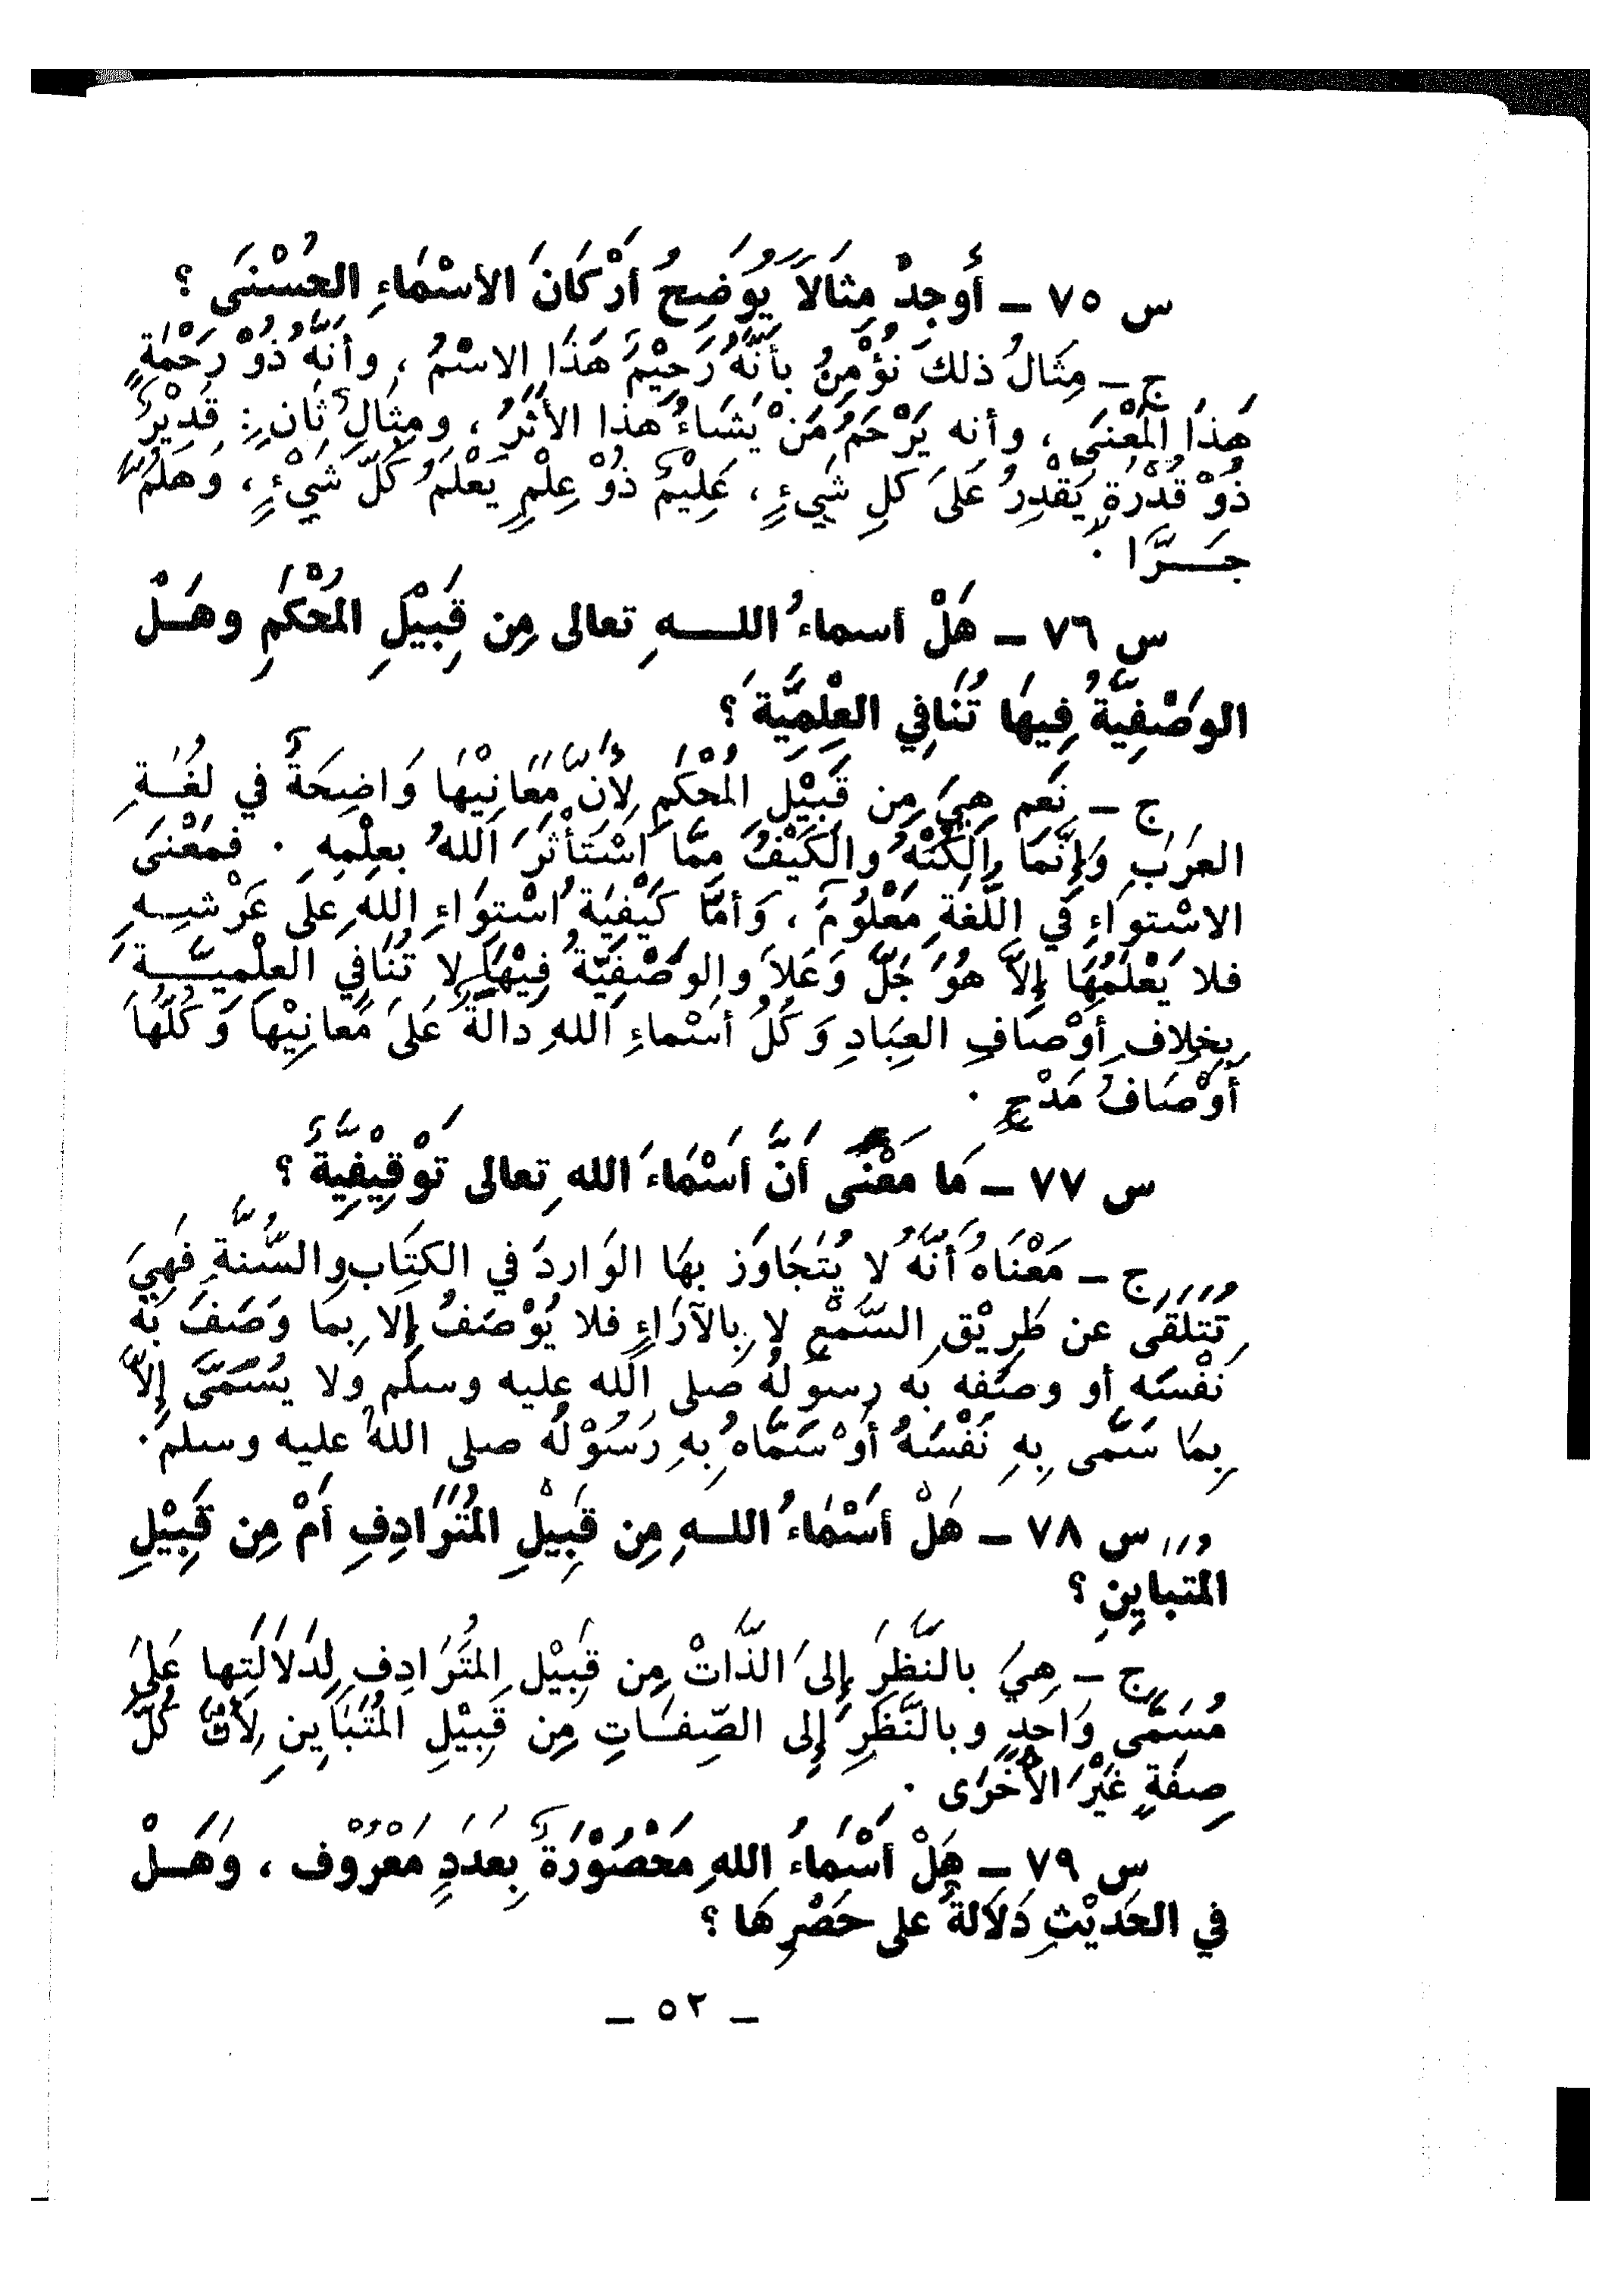 س ٧٥ ـ أَوجِدْ مِثَالاً يُوَضِحُ أَرْكَانَ الأَسْمَاءِ الحُسْنَى ؟
ج ـ مِثَالُ ذلكَ نُؤْمِنُ بأَنَّهُ رَحِيْمٌ هَذَا الاسْمُ ، وأَنَّهُ ذُوْ رَحْمَةٍ
هَذَا الْمَعْنَى ، وأنه يَرْحَمُ مَنْ يَشَاءُ هذا الأَثَرُ ، ومِثَالٌ ثَانٍ : قَدِيْرٌ
ذُوْ قُدْرَةٍ يَقْدِرُ عَلَى كلِ شَيءٍ ، عَلِيْمٌ ذُوْ عِلْمٍ يَعْلَمُ كُلَّ شَيْءٍ ، وَهَلُمَّ
جَـرَّا .
س ٧٦ ـ هَلْ أسماءُ اللـهِ تعالى مِن قَبِيْلِ المُحْكَمِ وهَـلْ
الوَصْفِيَّةُ فِيهَا تُنَافِي العِلْمِيَّةَ ؟
ج ـ نَعم هِيَ مِن قَبِيْلِ الْمُحْكَمِ لِأَنَّ مَعَانِيْهَا وَاضِحَةٌ في لُغَـةِ
العَرَبِ وَإِنَّمَا الكُنْهُ والكَيْفُ مِمَّا اسْتَأْثَرَ اللهُ بعِلْمِهِ . فمَعْنَى
الاسْتواءِ في اللُّغَةِ مَعْلُومٌ ، وَأمَّا كَيْفِيَةُ اسْتِوَاءِ اللهِ عَلَى عَرْشِـهِ
فلا يَعْلَمُهَا إِلاَّ هُوَ جَلَّ وَعَلاَ والوَصْفِيَّةُ فِيْهَا لا تُنَافِي العِلْمِيَّـةَ
بِخِلافِ أَوْصَافِ العِبَادِ وَكُلُ أَسْماءِ اللهِ دالَةٌ عَلَى مَعانِيْهَا وَكُلُّهَا
أَوْصَافُ مَدْحٍ .
س ٧٧ ـ مَا مَعْنَى أَنَّ أَسْمَاءَ اللهِ تعالى تَوْقِيْفِيَّةٌ ؟
ج ـ مَعْنَاهُ أَنَّهُ لا يُتَجَاوَز بهَا الوَاردَ في الكتَاب والسُّنةِ فَهِيَ
تُتَلَقَّى عن طَرِيْقِ السَّمْعِ لا بِالآرَاءِ فلا يُوْصَفُ إلا بِما وَصَفَ به
نَفْسَه أو وصَفَه به رسولُهُ صلى الله عليه وسلم ولا يُسَمَّى إِلاَّ
بِمَا سَمَّى بِهِ نَفْسَهُ أَوْ سَمَّاهُ بِهِ رَسُوْلُهُ صلى اللهُ عليه وسلم .
س ٧٨ ـ هَلْ أَسْمَاءُ اللـهِ مِن قَبِيْلِ المُتَرَادِفِ أَمْ مِن قَبِيْلِ
المُتَبَايِنِ ؟
ج ـ هِيَ بالنَّظرَ إِلىَ الذَّاتْ مِن قَبِيْل المُتَرَادِفِ لِدَلاَلَتِها عَلَىَ
مُسَمَّى وَاحدٍ وبالنَّظَرِ إِلى الصِّفَـاتِ مِن قَبِيْلِ المُتَبَايِنِ لِأَنَّ كُلَّ
صِفَةٍ غَيْرَ الأُخْرَى .
س ٧٩ ـ هَلْ أَسْمَاءُ اللهِ مَحْصُوْرَةٌ بِعَدَدٍ مَعْرُوْف ، وَهَـلْ
في الحَديْثِ دَلاَلةٌ على حَصْرِهَا ؟
ـ ٥٢ ـ